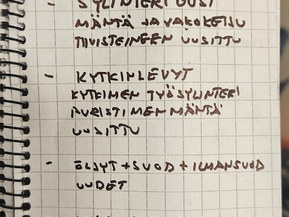 - SYLINTERI UUSI
MÄNTÄ JA VAKOKETJU
TIIVISTEINGEN UUSITTU
- KYTKINLEVYT
KYTKIMEN TYÖSYLINTERI
PURISTIMEN MÄNTÄ
UUSITTU
- ÖLJYT + SUOD + ILMANSUOD
UUDET